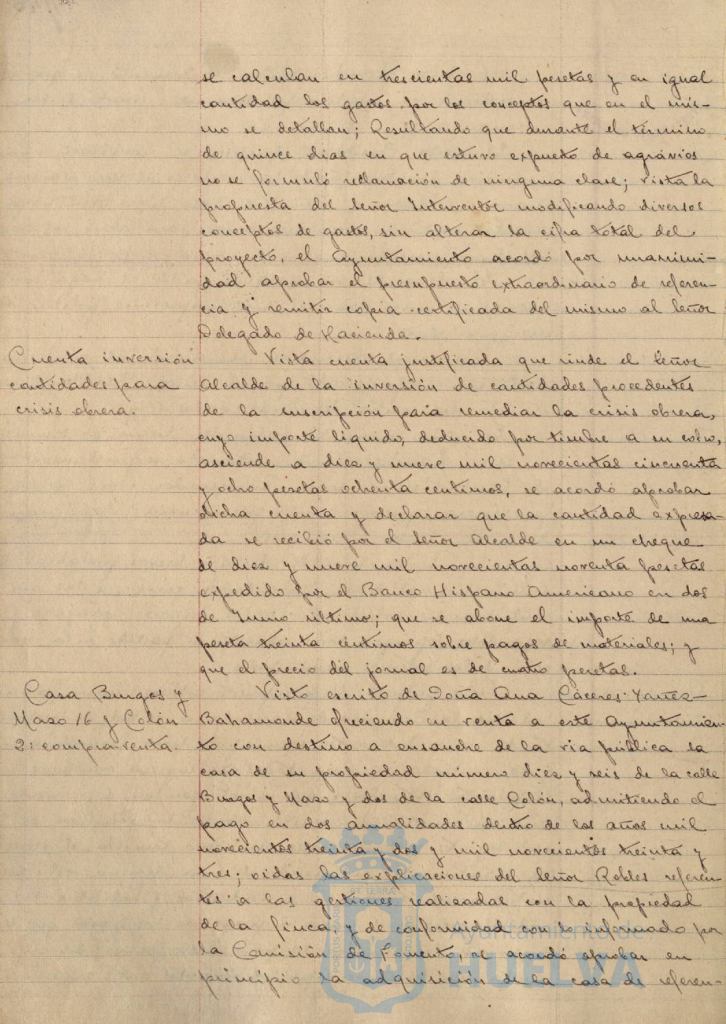 se calculan en trescientas mil pesetas y en igual
cantidad los gastos por los conceptos que en el mis-
mo se detallan; Resultando que durante el término
de quince dias en que estuvo expuesto de agravios
no se formuló reclamación de ninguna clase; vista la
propuesta del Señor Interventor modificando diversos
conceptos de gastos, sin alterar la cifra total del
proyecto, el Ayuntamiento acordó por unanimi-
dad aprobar el presupuesto extraordinario de referen-
cia y remitir copia certificada del mismo al Señor
Delegado de Hacienda.
Cuenta inversión
cantidades para
crisis obrera.
Vista cuenta justificada que rinde el Señor
Alcalde de la inversión de cantidades procedentes
de la suscripción para remediar la crisis obrera,
cuyo importe líquido, deducido por timbre a su cobro,
asciende a diez y nueve mil novecientas cincuenta
y ocho pesetas ochenta centimos, se acordó aprobar
dicha cuenta y declarar que la cantidad expresa-
da se recibió por el Señor Alcalde en un cheque
de diez y nueve mil novecientas noventa pesetas
expedido por el Banco Hispano Americano en dos
de Junio último; que se abone el importe de una
peseta treinta centimos sobre pagos de materiales; y
que el precio del jornal es de cuatro pesetas.
Casa Burgos y
Mazo 16 y Colón
2: compra-venta.
Visto escrito de Doña Ana Cáceres Yañez-
Bahamonde ofreciendo en venta a este Ayuntamien-
to con destino a ensanche de la via pública la
casa de su propiedad número diez y seis de la calle
Burgos y Mazo y dos de la calle Colón, admitiendo el
pago en dos anualidades dentro de los años mil
novecientos treinta y dos y mil novecientos treinta y
tres; oidas las explicaciones del Señor Robles referen-
tes a las gestiones realizadas con la propiedad
de la finca, y de conformidad con lo informado por
la Comisión de Fomento, se acordó aprobar en
principio la adquisición de la casa de referen-
Ayuntamiento de
HUELVA